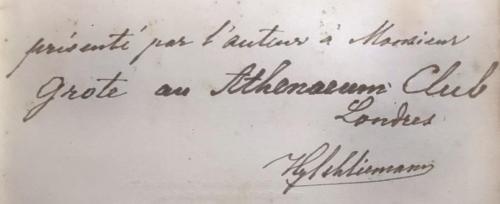 présenté par l'auteur à Monsieur
Grote au Athenaeum Club
Londres
HySchliemann